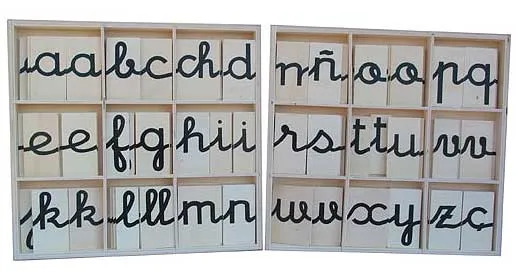 a a b c ch d
e e f g h i i
j k k l ll m n
n ñ o o p q
r s t t u v v
w v x y z ç